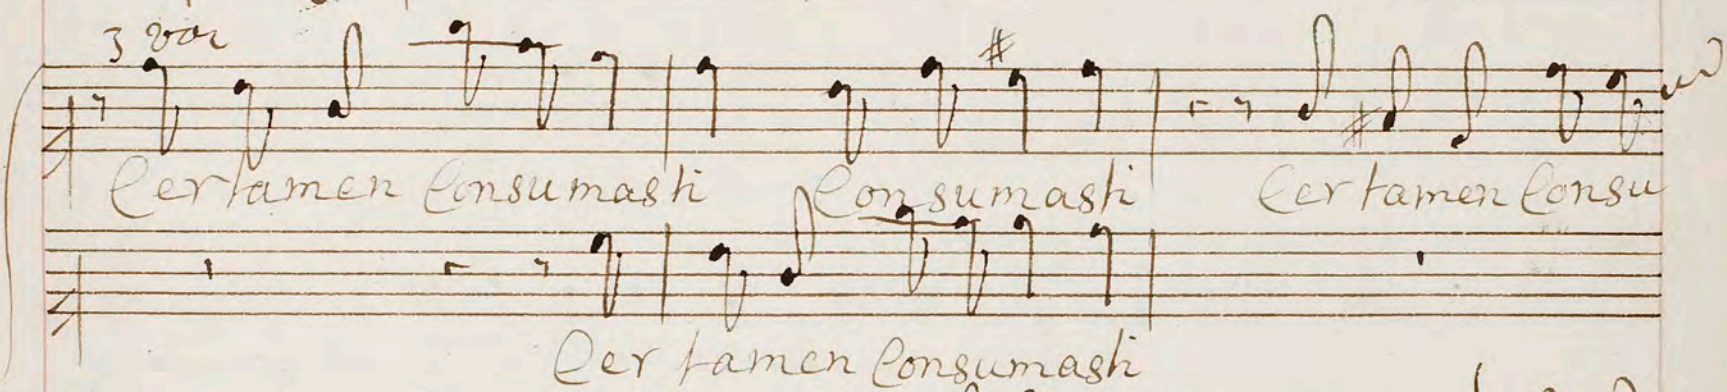 3 voc
Certamen Consumasti Consumasti Certamen Consu
Certamen Consumasti